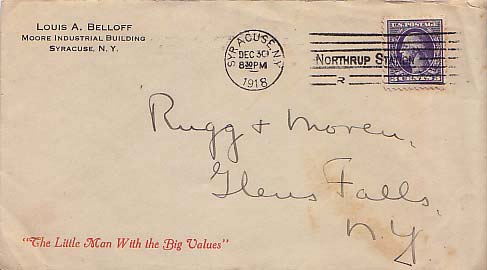 LOUIS A. BELLOFF
MOORE INDUSTRIAL BUILDING
SYRACUSE, N. Y.
SYRACUSE, N.Y.
DEC 30
8 30 PM
1918
NORTHRUP STATION
R
U.S. POSTAGE
3 CENTS 3
Rugg + Moren,
Glens Falls,
N.Y.
"The Little Man With the Big Values"